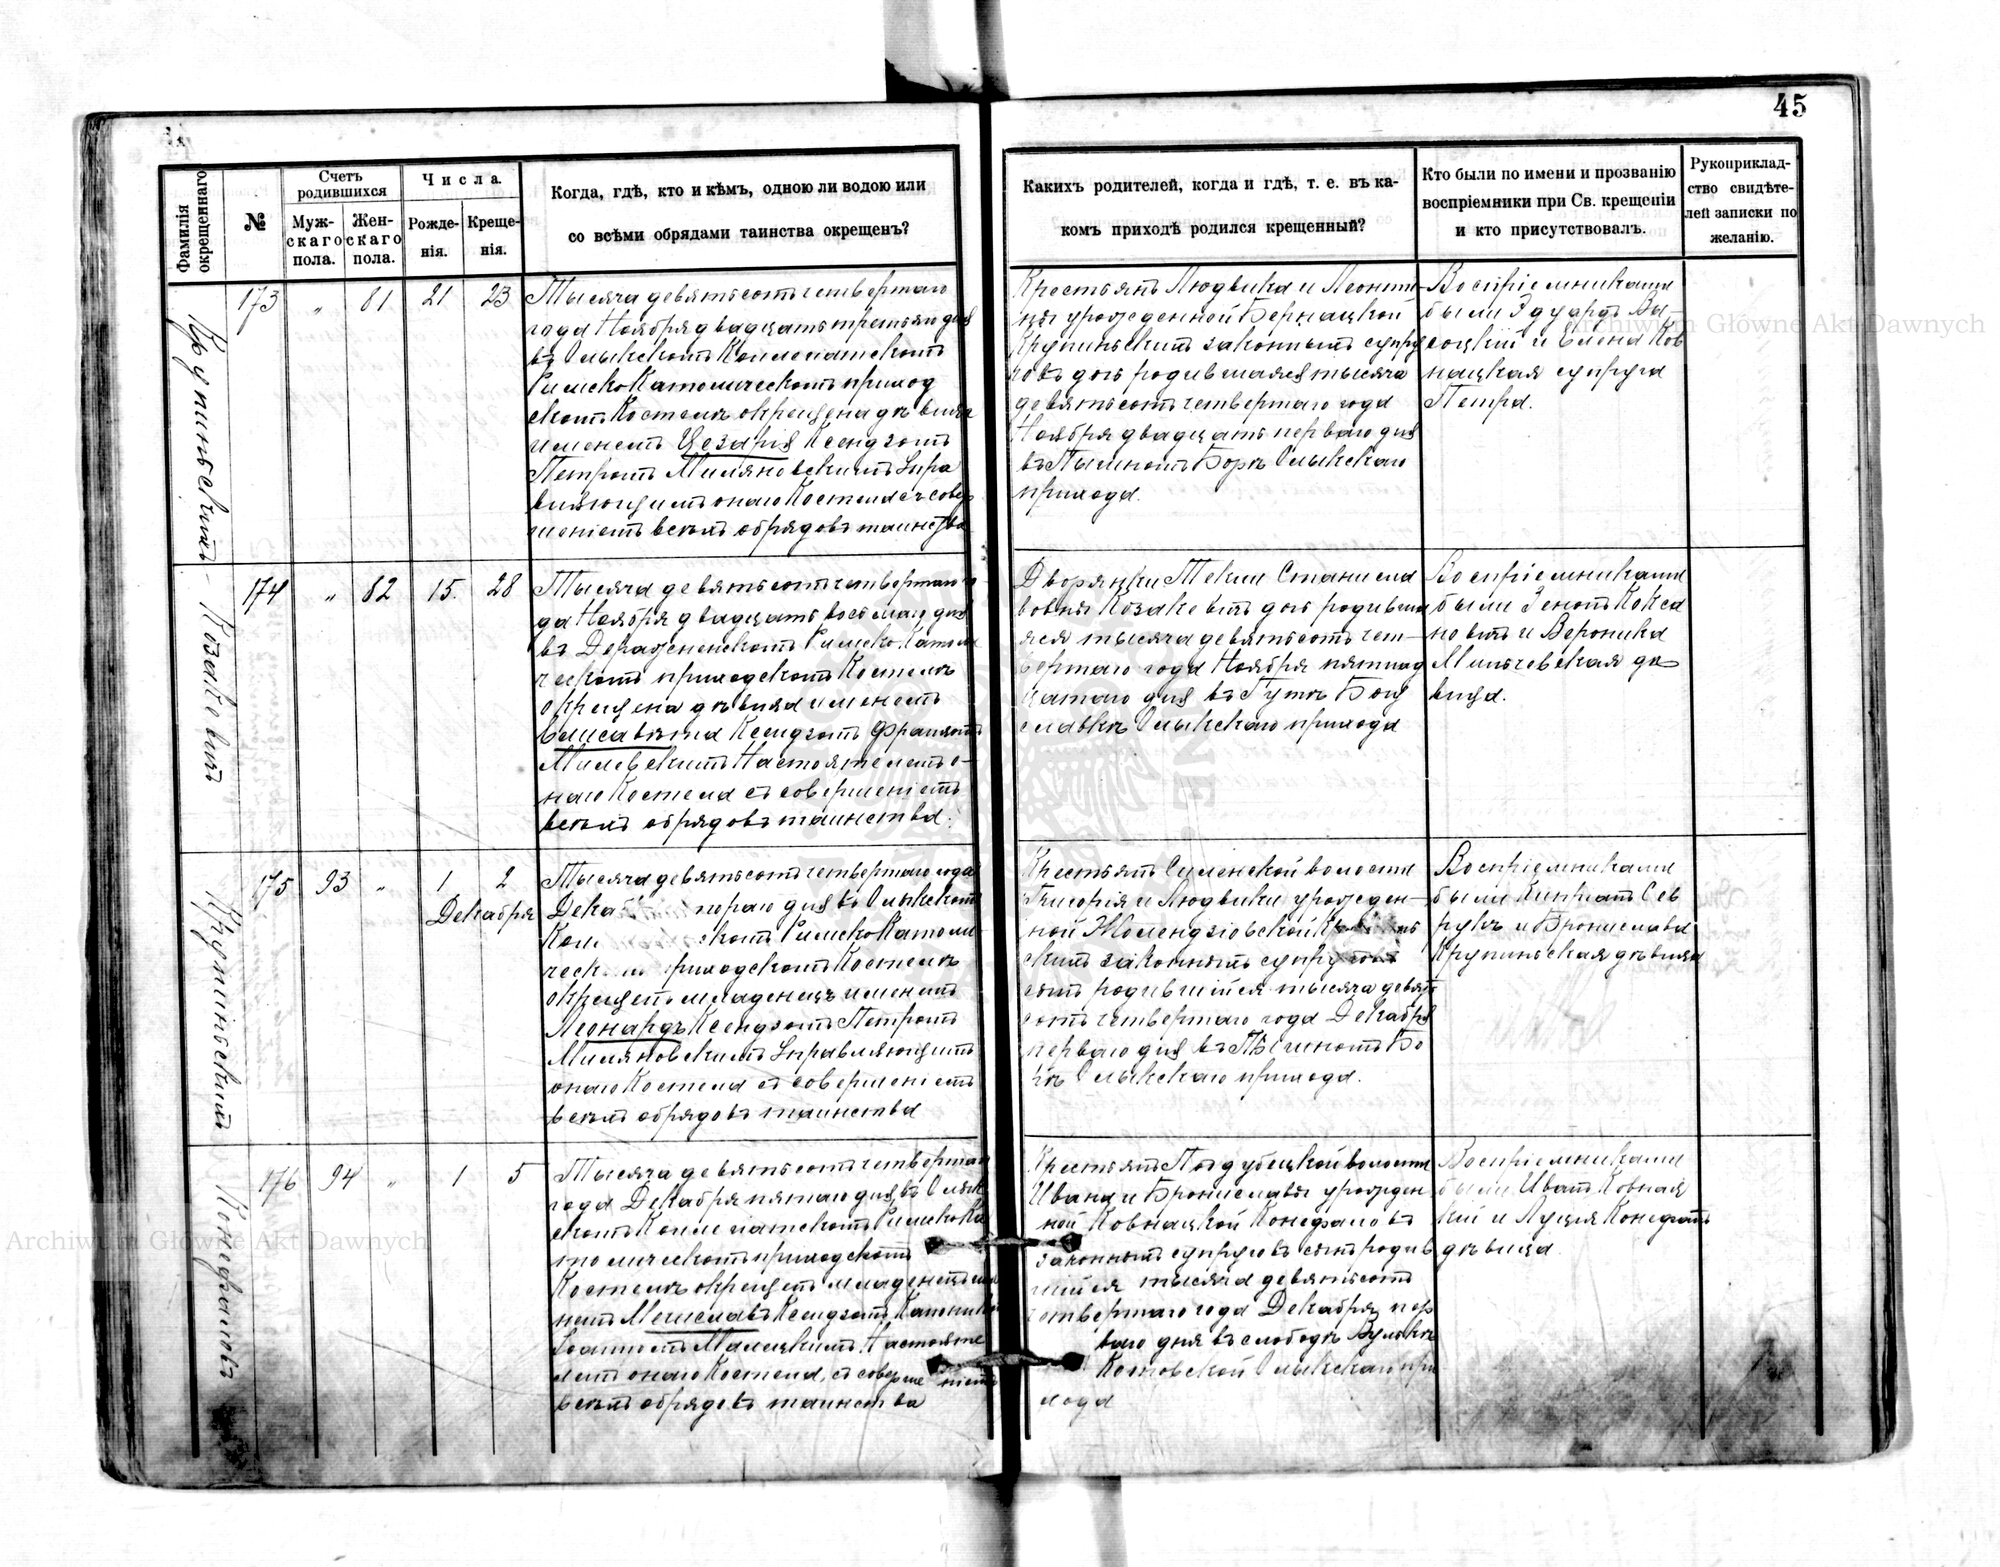 45
Фамилія окрещеннаго
№
Счетъ родившихся
Мужскаго пола.
Женскаго пола.
Числа.
Рожденія.
Крещенія.
Когда, гдѣ, кто и кѣмъ, одною ли водою или
со всѣми обрядами таинства окрещенъ?
Какихъ родителей, когда и гдѣ, т. е. въ ка-
комъ приходѣ родился крещенный?
Кто были по имени и прозванію
воспріемники при Св. крещеніи
и кто присутствовалъ.
Рукоприклад-
ство свидѣте-
лей записки по
желанію.
173 " 81 21 23
Тысяча девятьсотъ четвертаго
года Ноября двадцать третьяго дня
въ Олыкскомъ Коллегіатскомъ
Римско Католическомъ приход
скомъ Костелѣ окрещена дѣвица
именемъ Цезарія Ксендзомъ
Петромъ Миляновскимъ Упра
вляющимъ онаго Костела съ совер
шеніемъ всѣхъ обрядовъ таинства
Крестьянъ Людвика и Леонти-
ны урожденной Бернацкой
законныхъ супру
говъ дочь родившаяся тысяча
девятьсотъ четвертаго года
Ноября двадцать перваго дня
въ Пышномъ Боркѣ Олыкскаго
прихода.
Воспріемниками
были Эдуардъ Вы-
соцкій и Елена Ков
нацкая супруга
Петра.
Козакевичъ
174 " 82 15. 28
Тысяча девятьсотъ четвертаго го-
да Ноября двадцать восьмаго дня
въ Деражненскомъ Римско-Католи
ческомъ приходскомъ Костелѣ
окрещена дѣвица именемъ
Елисавета Ксендзомъ
Милевскимъ Настоятелемъ о-
наго Костела съ совершеніемъ
всѣхъ обрядовъ таинства.
Дворянки Теклии Станисла
вовны Козакевичъ дочь родивша
яся тысяча девятьсотъ чет-
вертаго года Ноября пятнад
цатаго дня въ Гутѣ Богу
славкѣ Олыкскаго прихода
Воспріемниками
были Зенонъ Кокса
новичъ и Вероника
Мильчевская дѣ
вица.
Крупинскій
175 93 " 1 2
Декабря
Тысяча девятьсотъ четвертаго года
въ Олыкскомъ
скомъ Римско Католи
приходскомъ Костелѣ
окрещенъ младенецъ именемъ
Леонардъ Ксендзомъ Петромъ
Миляновскимъ Управляющимъ
онаго Костела съ совершеніемъ
всѣхъ обрядовъ таинства
Крестьянъ Силенской волости
Григорія и Людвики урожден-
ной
скихъ законныхъ супруговъ
сынъ родившійся тысяча девять
сотъ четвертаго года Декабря
перваго дня въ Пышномъ Бо
ркѣ Олыкскаго прихода.
Воспріемниками
были
и Брониславa
Крупинская дѣвица
176 94 " 1 5
Тысяча девятьсотъ четвертаго
года Декабря пятаго дня въ Олык
скомъ Коллегіатскомъ Римско Ка
толическомъ приходскомъ
Костелѣ окрещенъ младенецъ име
немъ Мечиславъ Ксендзомъ Каноникомъ
Іоанномъ Малецкимъ Настояте
лемъ онаго Костела, съ совершеніемъ
всѣхъ обрядовъ таинства
Крестьянъ Поддубецкой волости
Ивана и Брониславы урожден
ной Ковнацкой
законныхъ супруговъ сынъ родив
шійся тысяча девятьсотъ
четвертаго года Декабря пер
ваго дня въ слободѣ Вулькѣ
Котовской Олыкскаго при
хода
Воспріемниками
были Иванъ Ковнац
кій и Луція
дѣвица
Archiwum Główne Akt Dawnych
Archiwum Główne Akt Dawnych